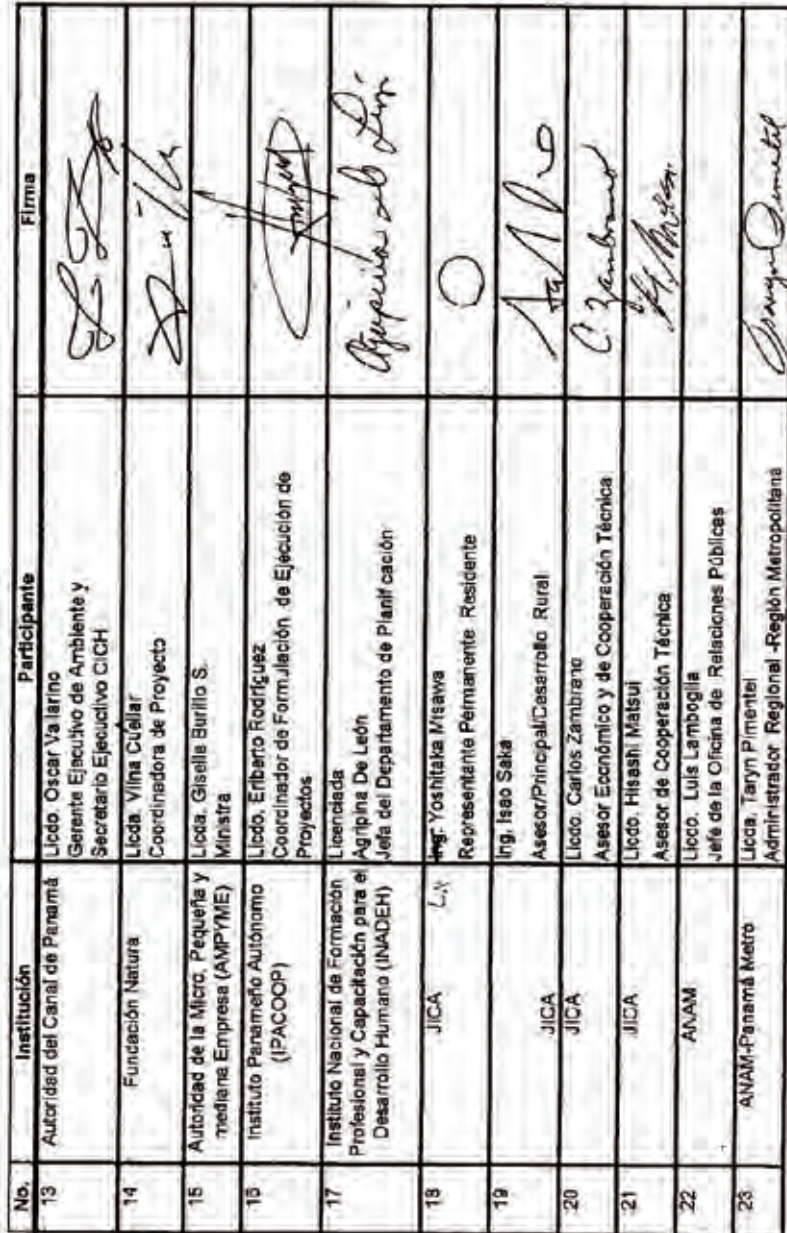 No. Institución Participante Firma
13 Autoridad del Canal de Panamá Licdo. Oscar Vallarino
Gerente Ejecutivo de Ambiente y
Secretario Ejecuctivo CICH
14 Fundación Natura Licda. Vilna Cuéllar
Coordinadora de Proyecto
15 Autoridad de la Micro, Pequeña y
mediana Empresa (AMPYME) Licda. Giselle Burillo S.
Ministra
16 Instituto Panameño Autónomo
(IPACOOP) Licdo. Eriberto Rodríguez
Coordinador de Formulación de Ejecución de
Proyectos
17 Instituto Nacional de Formación
Profesional y Capacitación para el
Desarrollo Humano (INADEH) Licenciada
Agripina De León
Jefa del Departamento de Planificación
Agripina de León
18 JICA Ing. Yoshitaka Misawa
Representante Permanente Residente
19 JICA Ing. Isao Saka
Asesor/Principal/Desarrollo Rural
20 JICA Licdo. Carlos Zambrano
Asesor Económico y de Cooperación Técnica
C. Zambrano
21 JICA Licdo. Hisashi Matsui
Asesor de Cooperación Técnica
22 ANAM Licco. Luis Lamboglia
Jefe de la Oficina de Relaciones Públicas
23 ANAM-Panamá Metro Licda. Taryn Pimentel
Administrador Regional -Región Metropolitana